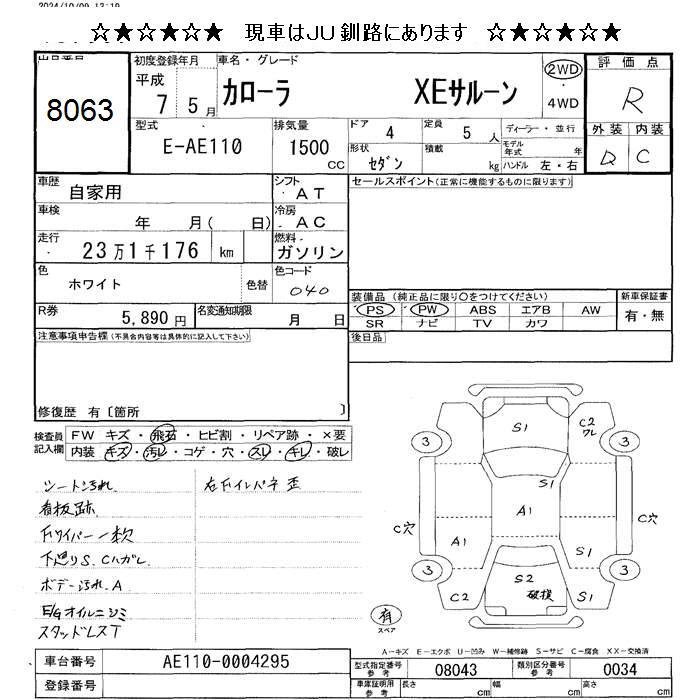 2024/10/09 13:19
☆★☆★☆★ 現車はJU釧路にあります ☆★☆★☆★
出品番号
8063
初度登録年月
平成 7 5月
車名・グレード
カローラ XEサルーン
2WD
・
4WD
評価点
R
外装 内装
D C
型式
E-AE110
排気量
1500
CC
ドア 4
定員 5 人
ディーラー・並行
形状 セダン
積載 kg
モデル年式 年
ハンドル 左・右
車歴
自家用
シフト
AT
セールスポイント(正常に機能するものに限ります)
車検
年 月( 日)
冷房
AC
走行
23万1千176 km
燃料
ガソリン
色
ホワイト
色替
色コード
040
R券
5,890円
名変通知期限
月 日
装備品(純正品に限り○をつけてください)
PS PW ABS エアB AW
SR ナビ TV カワ
新車保証書
有・無
注意事項申告欄(不具合内容等は具体的に記入して下さい)
後日品
修復歴 有〔箇所 〕
検査員記入欄
FW キズ・飛石・ヒビ割・リペア跡・×要
内装 キズ・汚レ・コゲ・穴・スレ・キレ・破レ
シート汚れ
右Fインパネ歪
看板跡
Fワイパー一欠
下廻りS、Cハガレ
ボデー汚れ、A
E/Gオイルニジミ
スタッドレスT
S1
C2
ワレ
3
3
S1
A1
C穴
C穴
A1
S1
3
3
C2
S2
破損
S1
有
スペア
A-キズ E-エクボ U-凹み W-補修跡 S-サビ C-腐食 XX-交換済
車台番号
AE110-0004295
登録番号
型式指定番号
参考
08043
類別区分番号
参考
0034
車庫証明用
参考
長さ cm
幅 cm
高さ cm